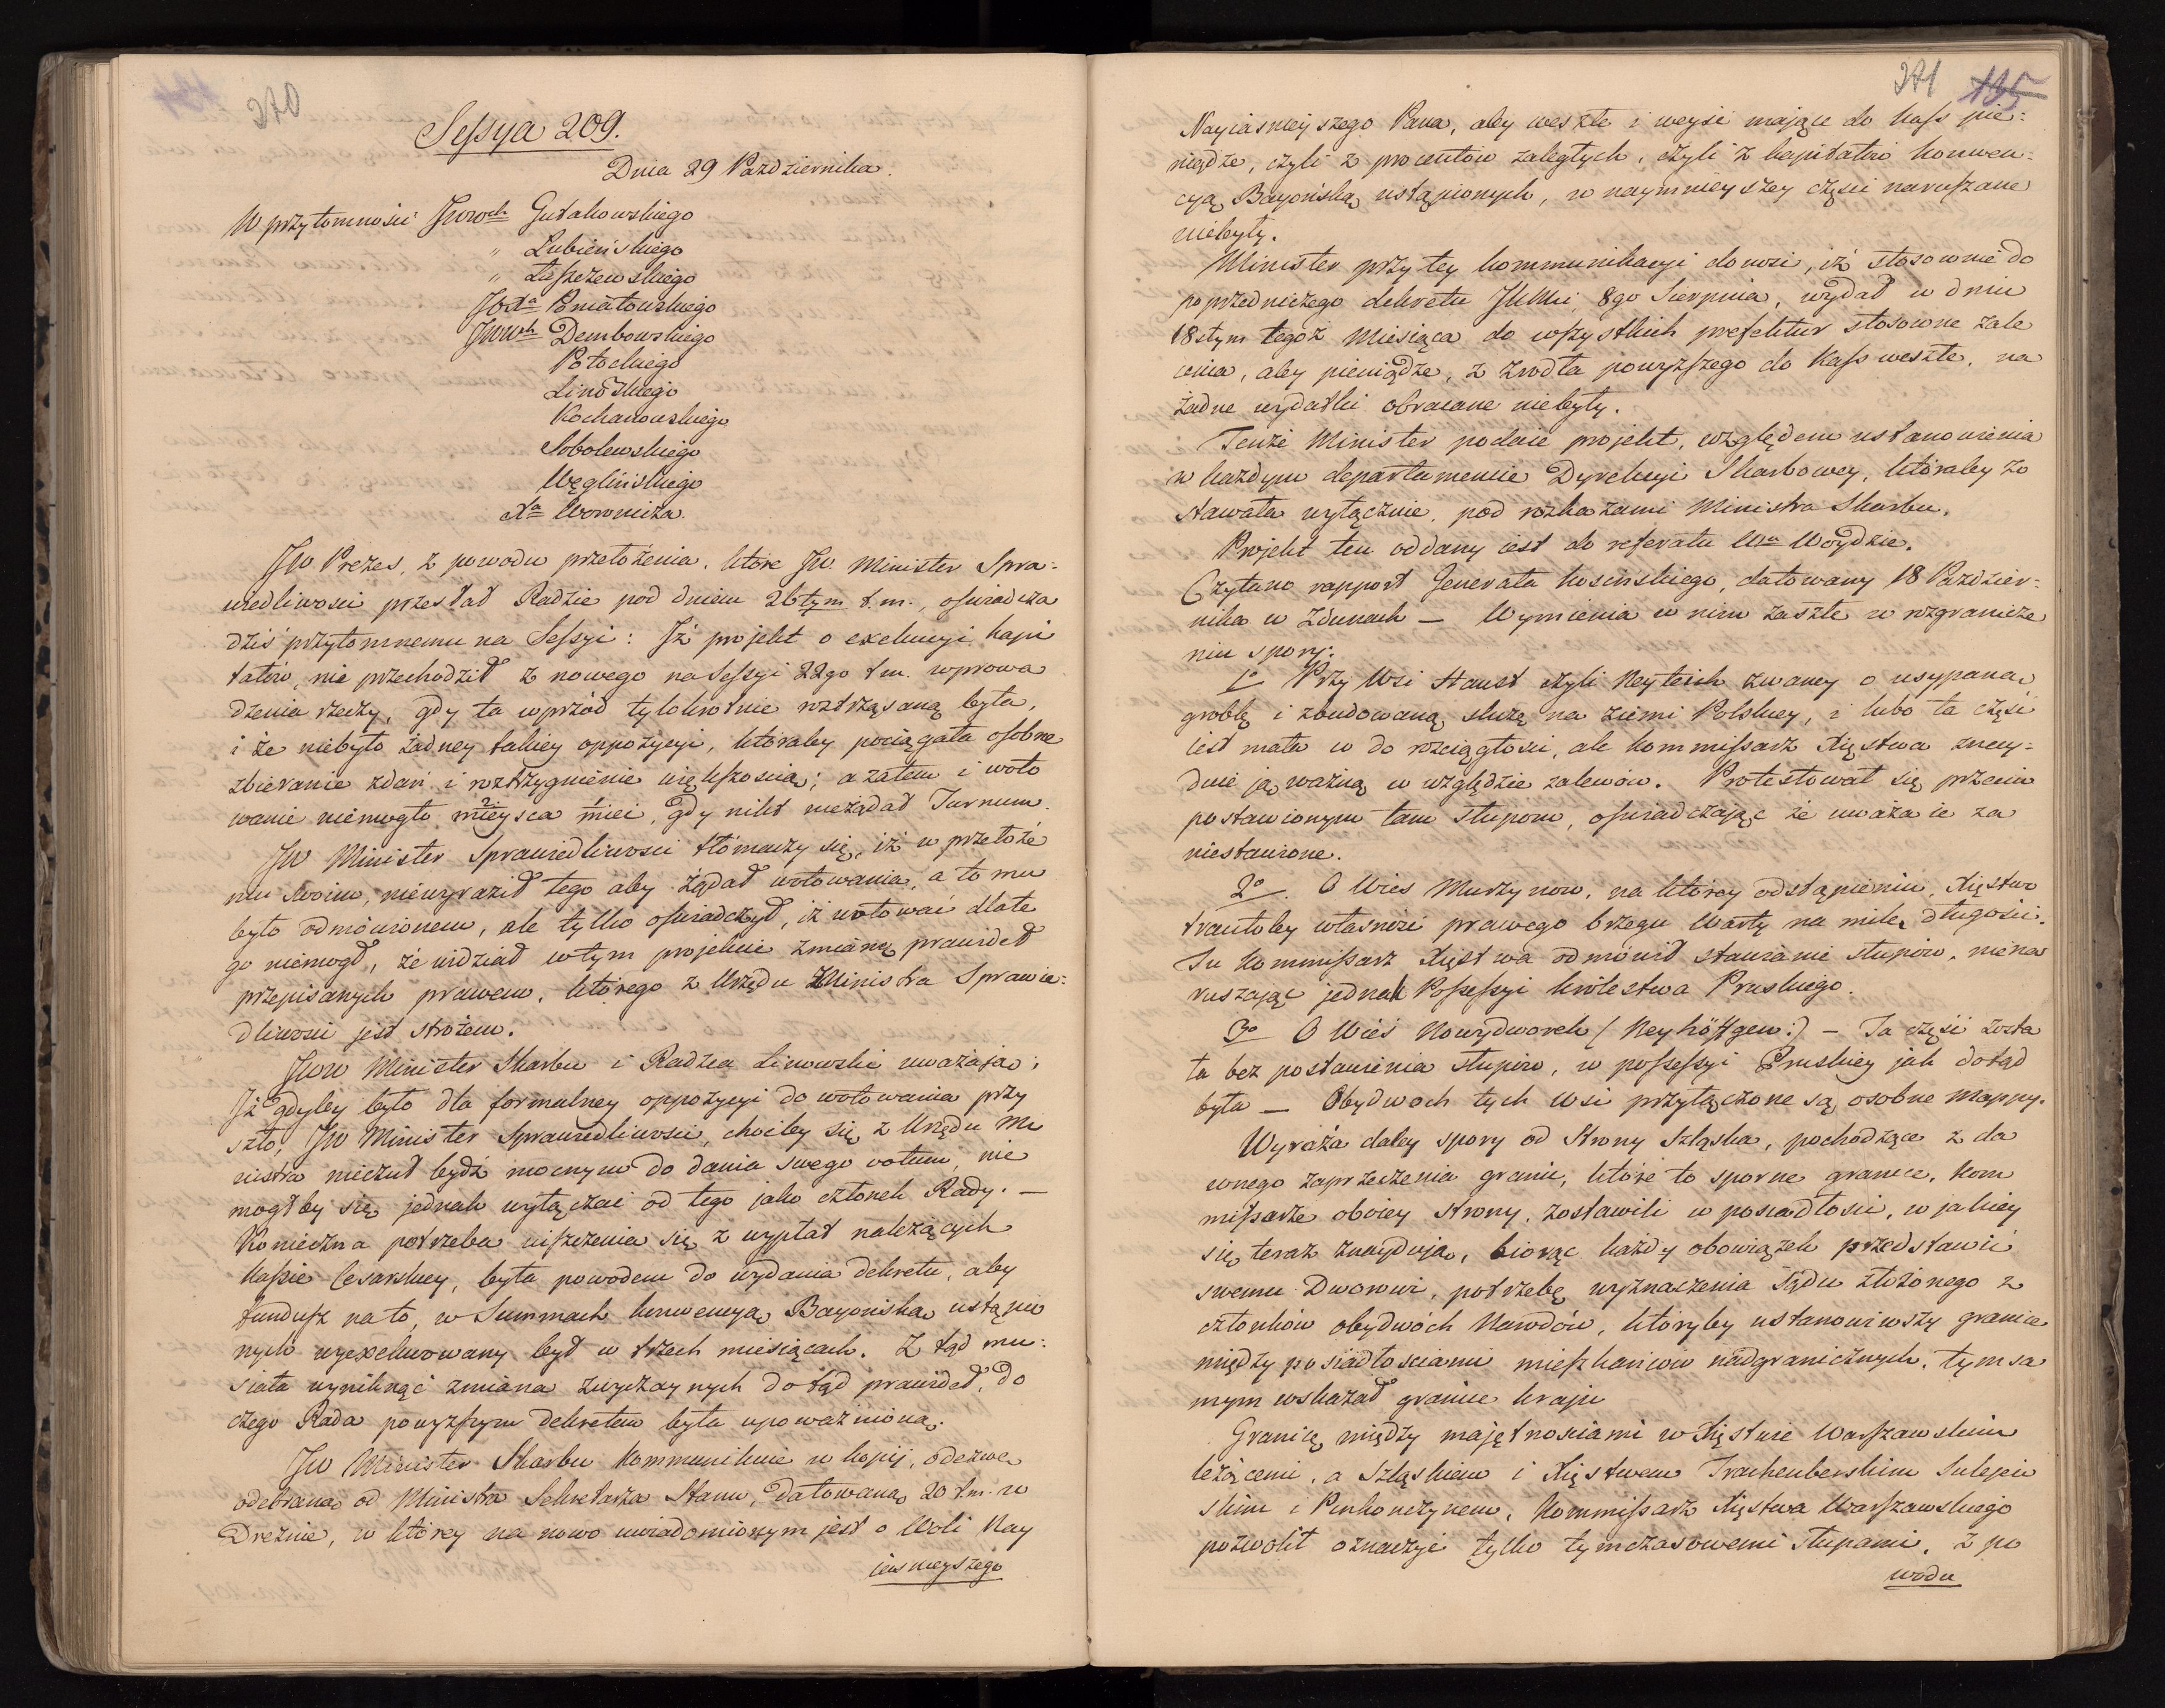 270
Sessya 209.
Dnia 29 Pazdziernika.
W przytomności JWW<sup>ch</sup> Gutakowskiego
" Lubieńskiego
" Łuszczewskiego
JOX<sup>a</sup> Poniatowskiego
JWW<sup>ch</sup> Dembowskiego
Potockiego
Linowskiego
Kochanowskiego
Sobolewskiego
Węglińskiego
X<sup>a</sup> Woronicza.
JW Prezes, z powodu przełożenia, które JW. Minister Spra-
wiedliwości przesłał Radzie pod dniem 26tym t. m., oświadcza
dziś przytomnemu na Sessyi: Iż projekt o exekucyi kapi
tałów, nie przechodził z nowego na Sessyi 22go t m. wprowa
dzenia rzeczy, gdy ta wprzód tylokrotnie roztrząsaną była,
i że niebyło żadney takiey oppozycyi, któraby pociągała osobne
zbieranie zdań i roztrzygnienie większością; a zatem i woto
wanie niemogło mieysca mieć, gdy nikt nieżądał Turnum.
JW Minister Sprawiedliwości tłómaczy się, iż w przełoże
niu swoim, niewyraził tego aby żądał wotowania, a to mu
było odmówionem, ale tylko oświadczył, iż wotować dlate
go niemógł, że widział w tym projekcie zmianę prawideł
przepisanych prawem, którego z Urzędu Ministra Sprawie-
dliwości jest stróżem.
JWW Minister Skarbu i Radzca Linowski uważają;
Iż gdyby było dla formalney oppozycyi do wotowania przy
szło, JW Minister Sprawiedliwości, choćby się z Urzędu Mi
nistra nieczuł bydź mocnym do dania swego votum, nie
mógłby się jednak wyłączać od tego jako członek Rady. —
Konieczna potrzeba uiszczenia się z wypłat należących
kassie Cesarskiey, była powodem do wydania dekretu, aby
fundusz na to, w Summach konwencyą Bayońską ustąpio
nych wyexekwowany był w trzech miesiącach. Z tąd mu-
siała wyniknąć zmiana zwyczaynych dotąd prawideł, do
czego Rada powyższym dekretem była upoważnioną.
JW Minister Skarbu kommunikuie w kopij, odezwę
odebraną od Ministra Sekretarza Stanu, datowaną 20 t. m. w
Dreznie, w którey na nowo uwiadomionym jest o Woli Nay
iaśnieyszego
271 135
Nayiaśnieyszego Pana, aby weszłe i weyść mające do kass pie-
niądze, czyli z procentów zaległych, czyli z kapitałów konwen-
cyą Bayońską ustąpionych, w naymnieyszey części naruszane
niebyły.
Minister przy tey kommunikacyi donosi, iż stosownie do
poprzedniczego dekretu JKMci 8go Sierpnia, wydał w dniu
18stym tegoż Miesiąca do wszystkich prefektur stosowne zale
cenia, aby pieniądze, z źrodła powyższego do Kass weszłe, na
żadne wydatki obracane niebyły.
Tenże Minister podaie projekt, względem ustanowienia
w każdym departamencie Dyrekcyi Skarbowey, któraby zo
stawała wyłącznie pod rozkazami Ministra Skarbu.
Projekt ten oddany iest do referatu W<sup>u</sup> Woydzie.
Czytano rapport Generała Kosińskiego, datowany 18 Pazdzier-
nika w Zdunach — Wymienia w nim zaszłe w rozgranicze
niu spory:
1<sup>o</sup> Przy Wsi Hauet czyli Neyteich zwaney o usypaną
groblę i zbudowaną sluzę na ziemi Polskiey, i lubo ta część
iest mała co do rozciągłości, ale kommissarz Xięstwa znay-
duie ją ważną w względzie zalewów. Protestował się przeciw
postawionym tam słupom, oświadczając że uważa ie za
niestawione.
2<sup>o</sup> O Wieś Murzynow, na którey odstąpieniu, Xięstwo
traciłoby własność prawego brzegu Warty na milę długości.
Tu kommissarz Xięstwa odmówił stawianie słupów, niena
ruszając jednak Possessyi królestwa Pruskiego.
3<sup>o</sup> O Wieś Nowydworek (Neyhöffgen:) — Ta część zosta
ła bez postawienia słupów, w possessyi Pruskiey jak dotąd
była — Obydwoch tych wsi przyłączone są osobne mappy.
Wyraża daley spory od Strony Szląska, pochodzące z da
wnego zaprzeczenia granic, które to sporne granice, kom
missarze oboiey strony, zostawili w posiadłości, w jakiey
się teraz znayduią, biorąc każdy obowiązek przedstawić
swemu Dworowi, potrzebę wyznaczenia Sądu złożonego z
członków obydwóch Narodów, któryby ustanowiwszy granice
między posiadłościami mieszkańców nadgranicznych, tym sa
mym wskazał granice kraju
Granicę między majętnościami w Xięstwie Warszawskim
leżącemi, a Szląskiem i Xięstwem Trachenberskim Sulejow
skim i Kommissarz Xięstwa Warszawskiego
pozwolił oznaczyć tylko tymczasowemi słupami, z po
wodu